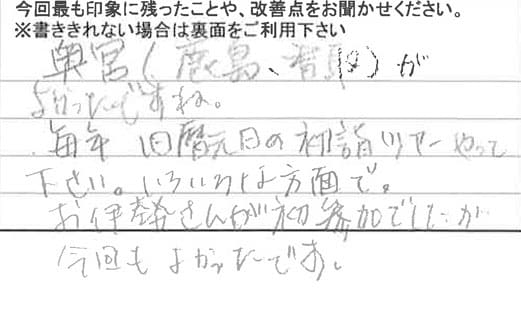 今回最も印象に残ったことや、改善点をお聞かせください。
※書ききれない場合は裏面をご利用下さい
奥宮(鹿島、香取)が
よかったですね。
毎年 旧暦元日の初詣ツアーやって
下さい。いろいろな方面で。
お伊勢さんが初参加でしたが
今回もよかったです。